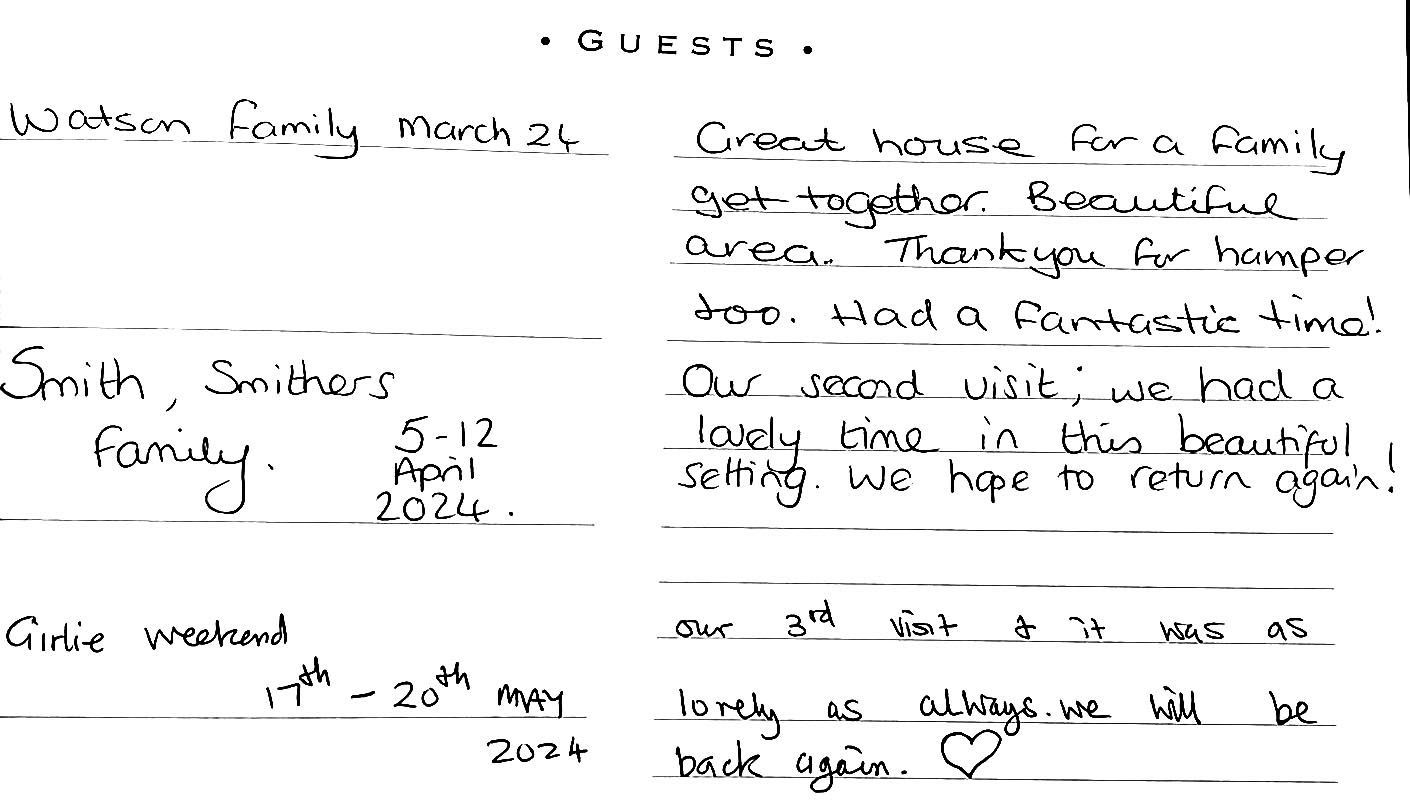 • GUESTS •
Watson family March 24
Great house for a family
get-together. Beautiful
area. Thankyou for hamper
too. Had a fantastic time!
Smith, Smithers
family.
5-12
April
2024.
Our second visit; we had a
lovely time in this beautiful
setting. We hope to return again!
Girlie weekend
17th - 20th MAY
2024
our 3rd visit & it was as
lovely as always. we will be
back again. ♡